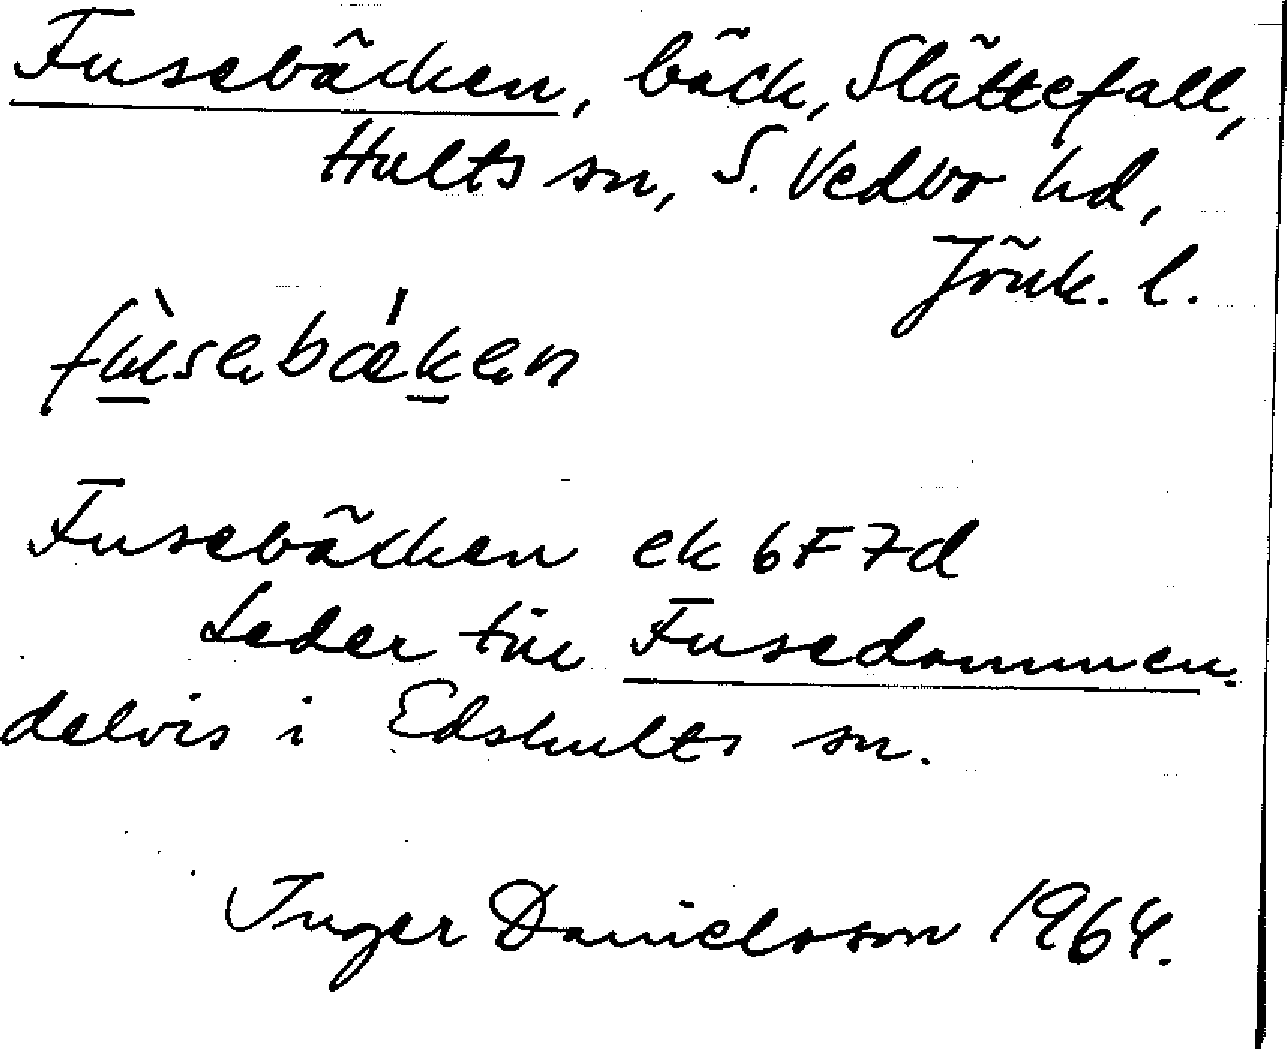 Fusebäcken, bäck, Slättefall,
Hults sn, S. Vedbo hd,
Jönk. l.
fùsebǽken
Fusebäcken ek 6F7d
Leder till Fusedammen.
delvis i Edshults sn.
Inger Danielsson 1964.